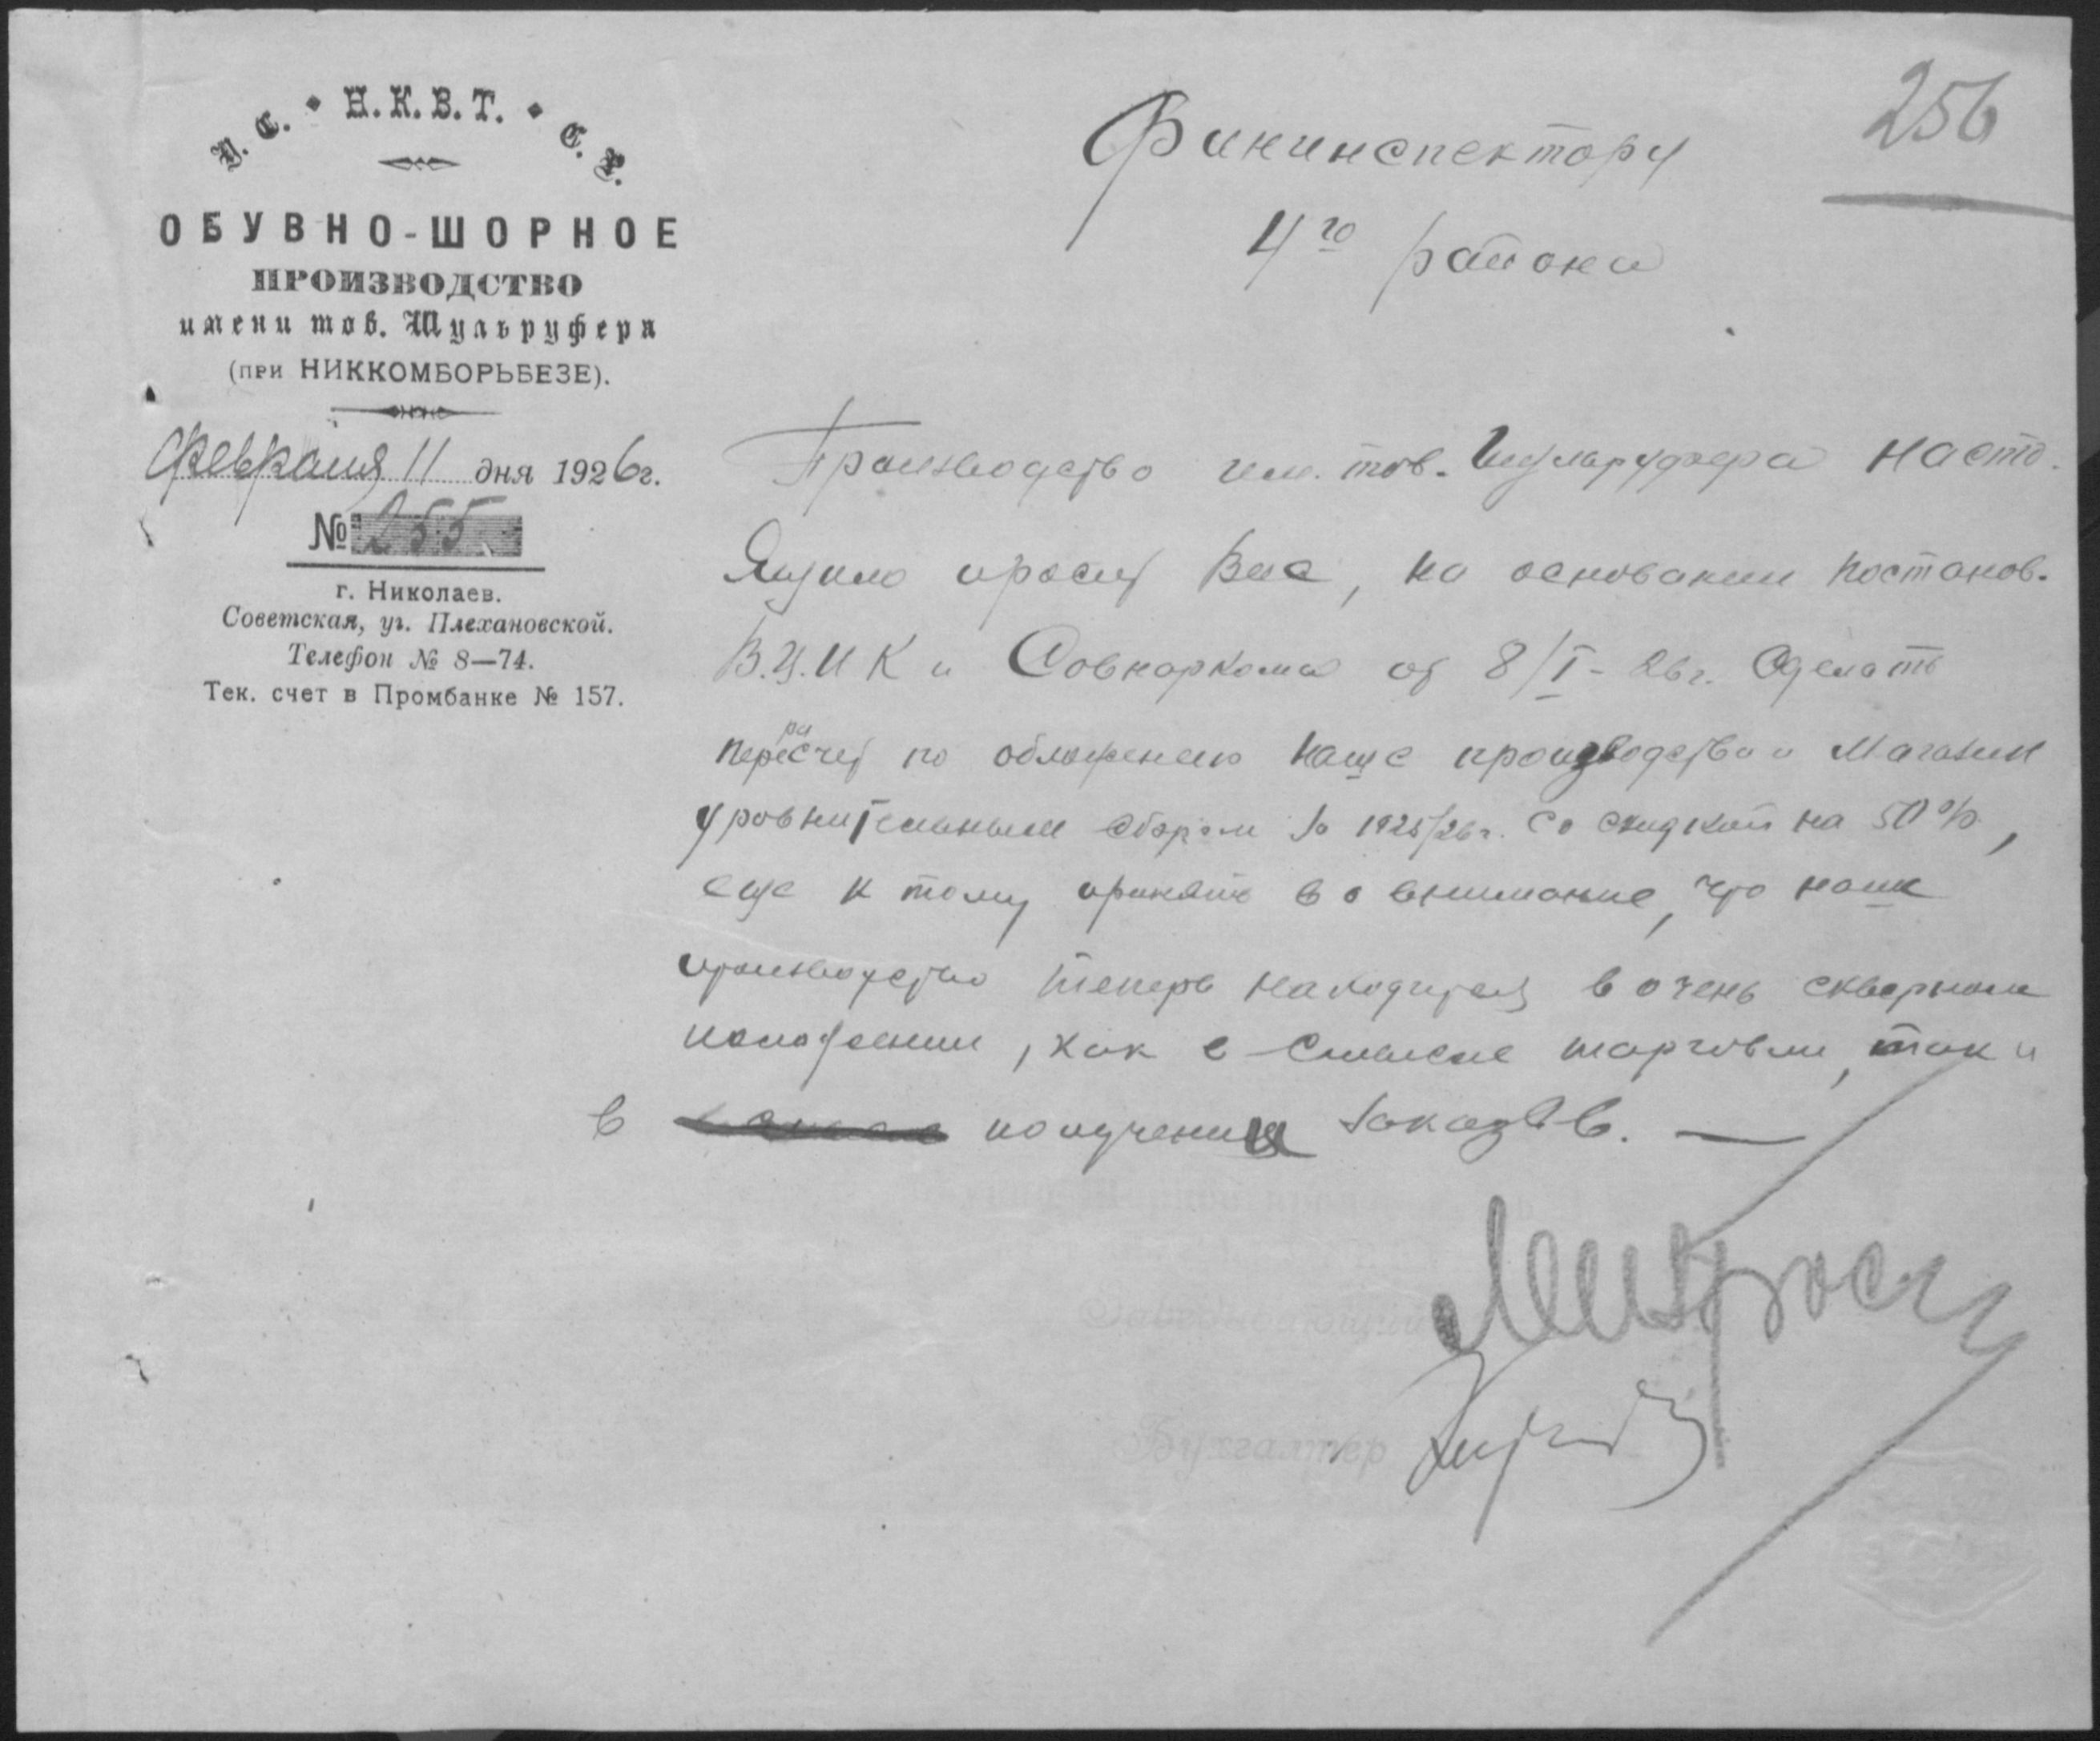 У. С. • Н. К. В. Т. • С. Р.
ОБУВНО-ШОРНОЕ
ПРОИЗВОДСТВО
имени тов. Шульруфера
(при НИККОМБОРЬБЕЗЕ).
Февраля 11 дня 1926г.
№ 255
г. Николаев.
Советская, уг. Плехановской.
Телефон № 8—74.
Тек. счет в Промбанке № 157.
256
Фининспектору
4го района
Производство им. тов. Шульруфера насто.
Ящим просит Вас, на основании постанов.
В.Ц.И К и Совнаркома от 8/I - 26г. Сделать
перерасчет по обложению наше производство и Магазин
уровнительным сбором за 1925/26г. со скидкой на 50%,
еще к тому принять во внимание, что наше
производство теперь находится в очень скверном
положении, как в смысле торговли, так и
в получении заказов. —
Заведывающий
Бухгалтер